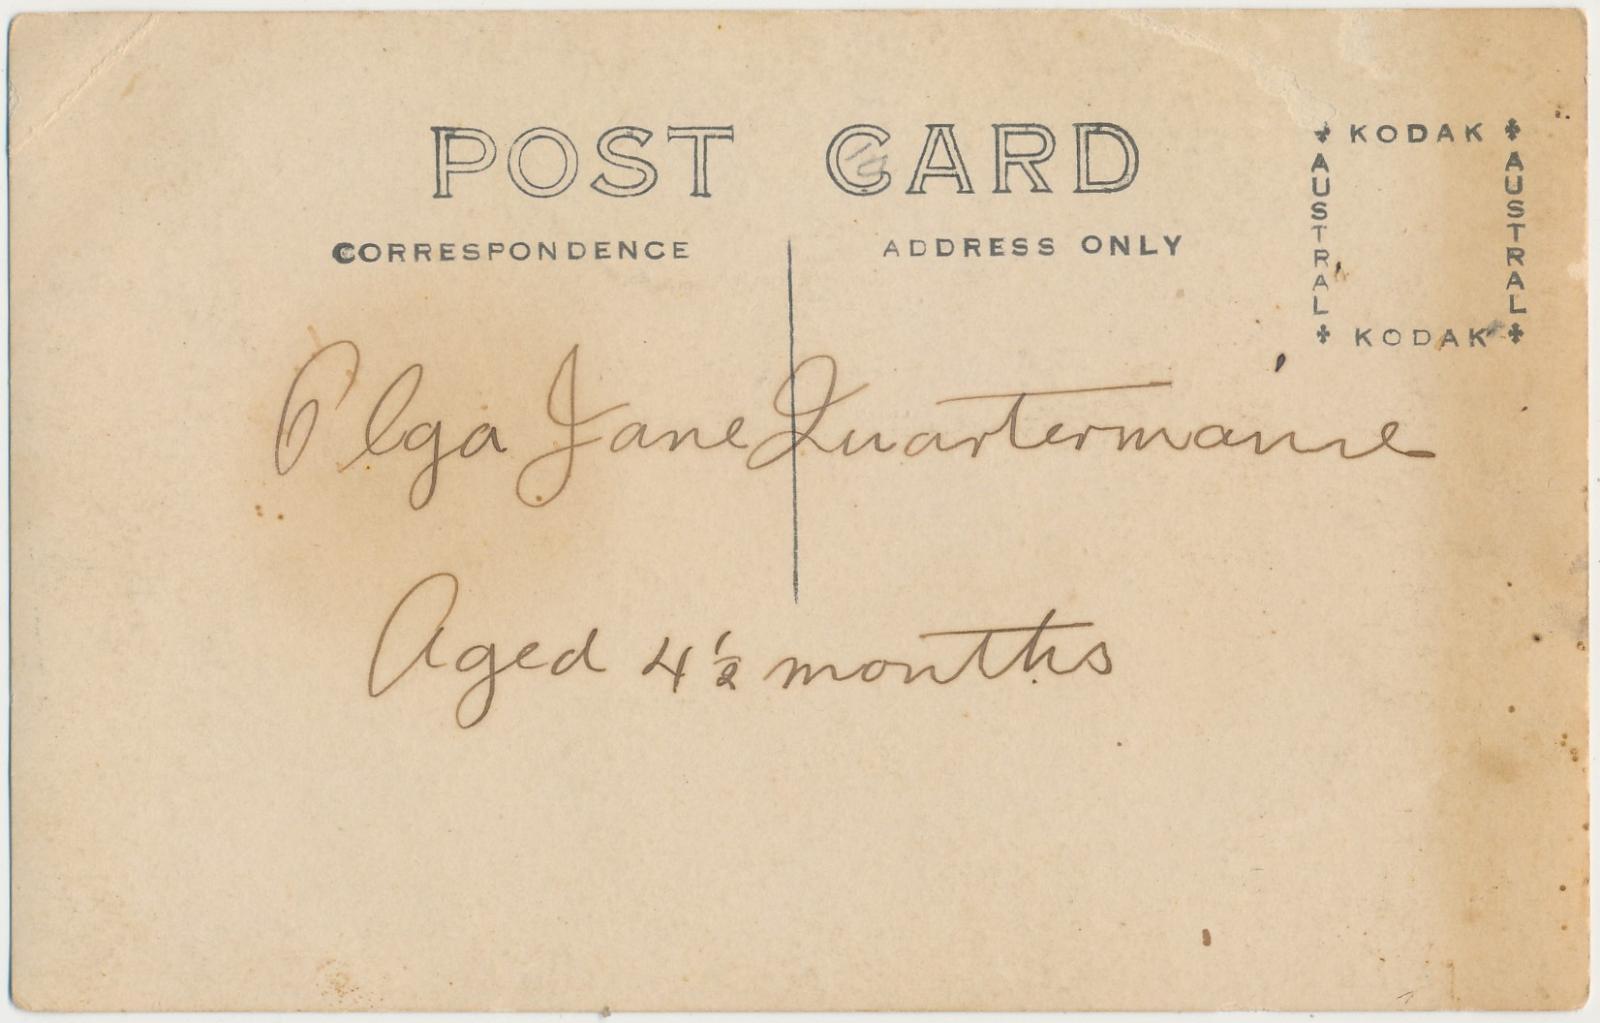 POST CARD
CORRESPONDENCE
ADDRESS ONLY
KODAK
AUSTRAL
AUSTRAL
KODAK
Olga Jane Quartermaine
Aged 4½ months